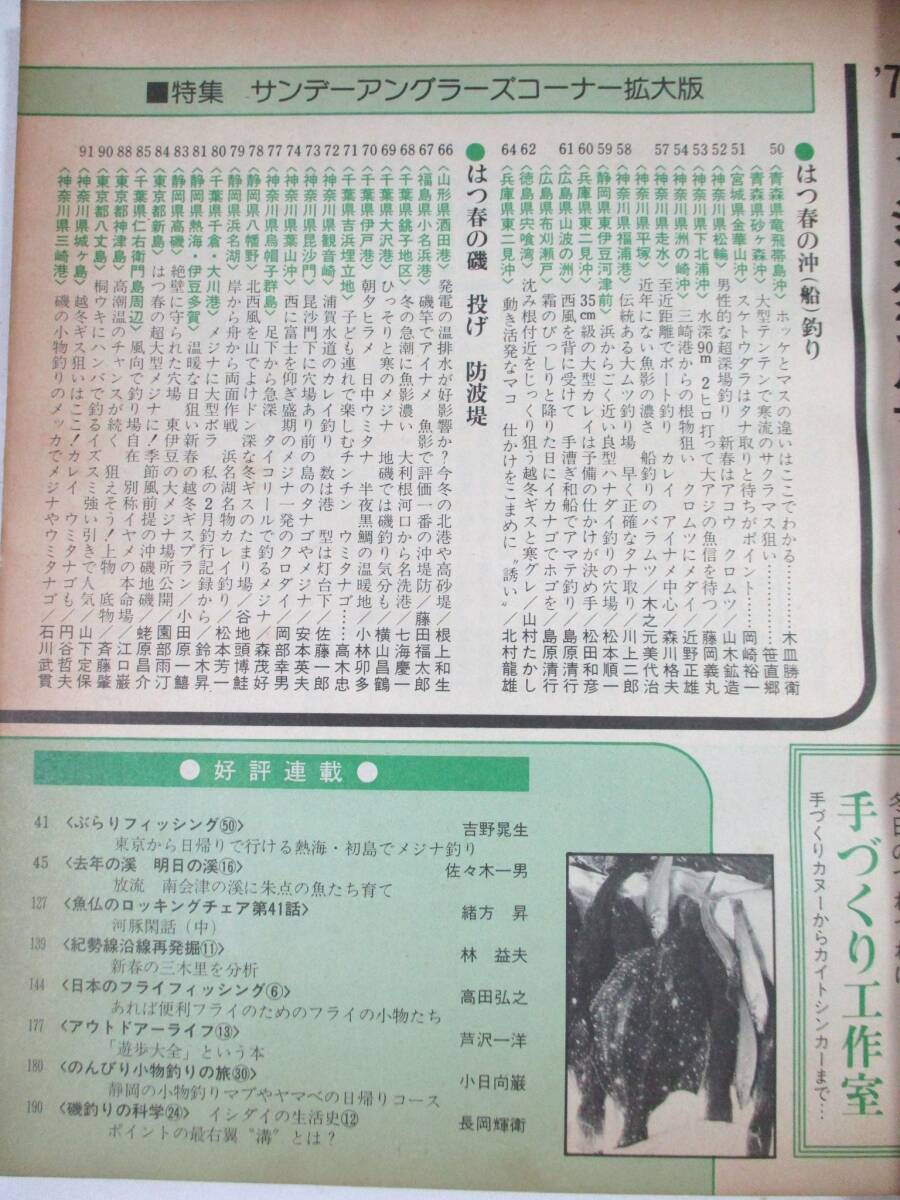 ■特集　サンデーアングラーズコーナー拡大版
●はつ春の沖(船)釣り
50 〈青森県竜飛帯島沖〉 ホッケとマスの違いはここでわかる…………木皿勝衛
〈青森県砂ヶ森沖〉 大型テンテンで寒流のサクラマス狙い…………笹直郷
51 〈宮城県金華山沖〉 スケトウダラはタナ取りと待ちがポイント……岡崎裕一
52 〈神奈川県松輪〉 男性的な超深場釣り 新春はアコウ クロムツ／山木鉱造
53 〈神奈川県下北浦沖〉 水深90m 2ヒロ打って大アジの魚信を待つ／藤岡義丸
54 〈神奈川県洲の崎沖〉 三崎港からの根物狙い クロムツにメダイ／近野正雄
57 〈神奈川県走水〉 至近距離でボート釣り カレイ アイナメ中心／森川格夫
〈神奈川県平塚〉 近年にない魚影の濃さ 船釣りのバラムツ／木之元美代治
58 〈神奈川県福浦港〉 伝統ある大ムツ釣り場 早く正確なタナ取り／川上二郎
59 〈静岡県東伊豆河津前〉 浜からごく近い良型ハナダイ釣りの穴場／松本順一
60 〈兵庫県東二見沖〉 35cm級の大型カレイは予備の仕かけが決め手／松田和彦
61 〈広島県山波の洲〉 西風を背に受けて 手漕ぎ和船でアマテ釣り／島原清行
〈広島県布刈瀬戸〉 霜のびっしりと降りた日にイカナゴでホゴを／島原清行
62 〈徳島県宍喰湾〉 沈み根付近をじっくり狙う越冬ギスと寒グレ／山村たかし
64 〈兵庫県東二見沖〉 動き活発なマコ 仕かけをこまめに〝誘い〟／北村龍雄
●はつ春の磯　投げ　防波堤
66 〈山形県酒田港〉 発電の温排水が好影響か?今冬の北港や高砂堤／根上和生
67 〈福島県小名浜港〉 磯竿でアイナメ 魚影で評価一番の沖堤防／藤田福太郎
68 〈千葉県銚子地区〉 冬の急潮に魚影濃い 大利根河口から名洗港／七海慶一
69 〈千葉県大沢港〉 ひっそりと寒のメジナ 地磯では磯釣り気分も／横山昌鶴
70 〈千葉県伊戸港〉 朝夕ヒラメ 日中ウミタナ 半夜黒鯛の温暖地／小林卯多
71 〈千葉県吉浜埋立地〉 子ども連れで楽しむチンチン ウミタナゴ……高木忠
72 〈神奈川県観音崎〉 浦賀水道のカレイ釣り 数は港 型は灯台下／佐藤一郎
73 〈神奈川県昆沙門〉 昆沙門下に穴場あり前の島のタナゴやメジナ／安本英夫
74 〈神奈川県葉山沖〉 西に富士を仰ぎ盛期のメジナ一発のクロダイ／岡部幸男
77 〈神奈川県烏帽子群島〉 足下から急深 タイコリールで釣るメジナ／森茂好
78 〈静岡県八幡野〉 北西風を山でよけドン深な冬ギスのたまり場／谷地頭博鮭
79 〈静岡県浜名湖〉 岸から舟から両面作戦 浜名湖名物カレイ釣り／松本芳一
80 〈千葉県千倉・大川港〉 メジナに大型ボラ 私の2月釣行記録から／鈴木昇
81 〈静岡県熱海・伊豆多賀〉 温暖な日狙い新春の越冬ギスプラン／小田原一鱚
83 〈静岡県高磯〉 絶壁に守られた穴場 東伊豆の大メジナ場所公開／園部雨汀
84 〈東京都新島〉 はつ春の超大型メジナに!季節風前提の沖磯地磯
85 〈千葉県仁右衛門島周辺〉 風向で釣り場自在 別称イヤメの本命場／蛯原昌介
88 〈東京都神津島〉 高潮温のチャンスが続く 狙えそう!上物 底物／江口巌
90 〈東京都八丈島〉 桐ウキにハンバで釣るイズスミ強い引きで人気／斉藤肇
91 〈神奈川県城ヶ島〉 越冬ギス狙いはここ!カレイ ウミタナゴも／山下定保
〈神奈川県三崎港〉 磯の小物釣りのメッカでメジナやウミタナゴ／円谷哲夫
石川武貫
●好評連載●
41 〈ぶらりフィッシング㊿〉 吉野晃生
東京から日帰りで行ける熱海・初島でメジナ釣り
45 〈去年の渓　明日の渓⑯〉 佐々木一男
放流　南会津の渓に朱点の魚たち育て
127 〈魚仏のロッキングチェア第41話〉 緒方　昇
河豚閑話(中)
139 〈紀勢線沿線再発掘⑪〉 林　益夫
新春の三木里を分析
144 〈日本のフライフィッシング⑥〉 高田弘之
あれば便利フライのためのフライの小物たち
177 〈アウトドアーライフ⑬〉 芦沢一洋
「遊歩大全」という本
180 〈のんびり小物釣りの旅㉚〉 小日向巌
静岡の小物釣りマブやヤマベの日帰りコース
190 〈磯釣りの科学㉔〉 イシダイの生活史⑫ 長岡輝衛
ポイントの最右翼〝溝〟とは?
手づくり工作室
手づくりカヌーからカイトシンカーまで…